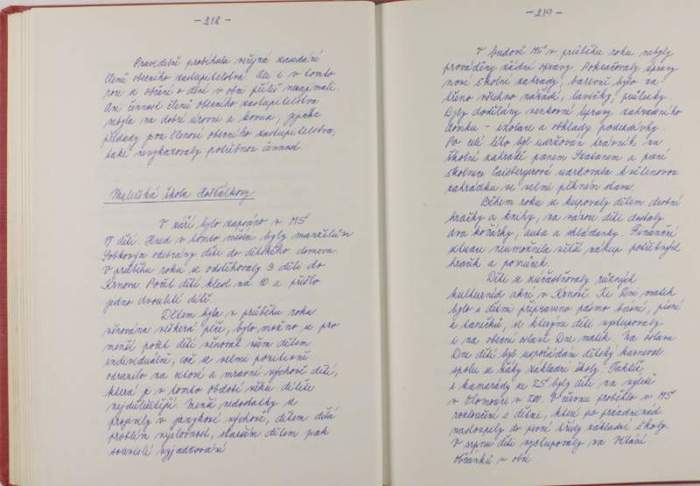 - 218 -
Pravidelně probíhala veřejná zasedání
členů obecního zastupitelstva. Ale i v tomto
roce se občané o dění v obci příliš nezajímali.
Ani činnost členů obecního zastupitelstva
nebyla na dobré úrovni a komise,
předsedy jsou členové obecního zastupitelstva,
také nevykazovaly potřebnou činnost.
Mateřská škola Hošťálkovy
V září bylo zapsáno v MŠ
17 dětí. Hned v tomto měsíci byly manželům
odebrány děti do dětského domova.
V průběhu roku se odstěhovaly 3 děti do
Krnova. Počet dětí klesl na 10 a přišlo
jedno dvouleté dítě.
Dětem byla v průběhu roku
věnována veškerá péče, bylo možno se pro
menší počet dětí věnovat všem dětem
individuálně, což se velmi pozitivně
odrazilo na citové a mravní výchově dětí,
která je v tomto období věku dítěte
nejdůležitější. Menší nedostatky se
projevily v jazykové výchově, dětem dělá
problém výslovnost, starším dětem pak
souvislé vyjadřování.
- 219 -
V budově MŠ v průběhu roku nebyly
prováděny žádné opravy. Pokračovaly úpravy
nové školní zahrady, barvení bylo na
všechno nářadí, lavičky, průlezky.
Byly dodělány venkovní úpravy zahradního
domku - izolace a obklady podezdívky.
Po celé léto byl udržován trávník na
školní zahradě panem a paní
školnice udržovala květinovou
zahrádku ve velmi pěkném stavu.
Během roku se kupovaly dětem drobné
hračky a knihy, na vánoce děti dostaly
dva kočárky, auta a skládanky. Finanční
situace neumožnila větší nákup potřebných
hraček a pomůcek.
Děti se zúčastňovaly různých
kulturních akcí v Krnově. Ke Dni matek
bylo s dětmi připraveno pásmo básní, písní
a tanečků, se kterým děti vystupovaly
i na obecní oslavě Dne matek. Na oslavu
Dne dětí byl uspořádán dětský karneval
spolu s žáky základní školy. Taktéž
s kamarády ze ZŠ byly děti na výletě
v Olomouci v ZOO. V červnu proběhlo v MŠ
rozloučení s dětmi, které po prázdninách
nastoupily do první třídy základní školy.
V srpnu děti vystupovaly na vítání
občánků v obci.